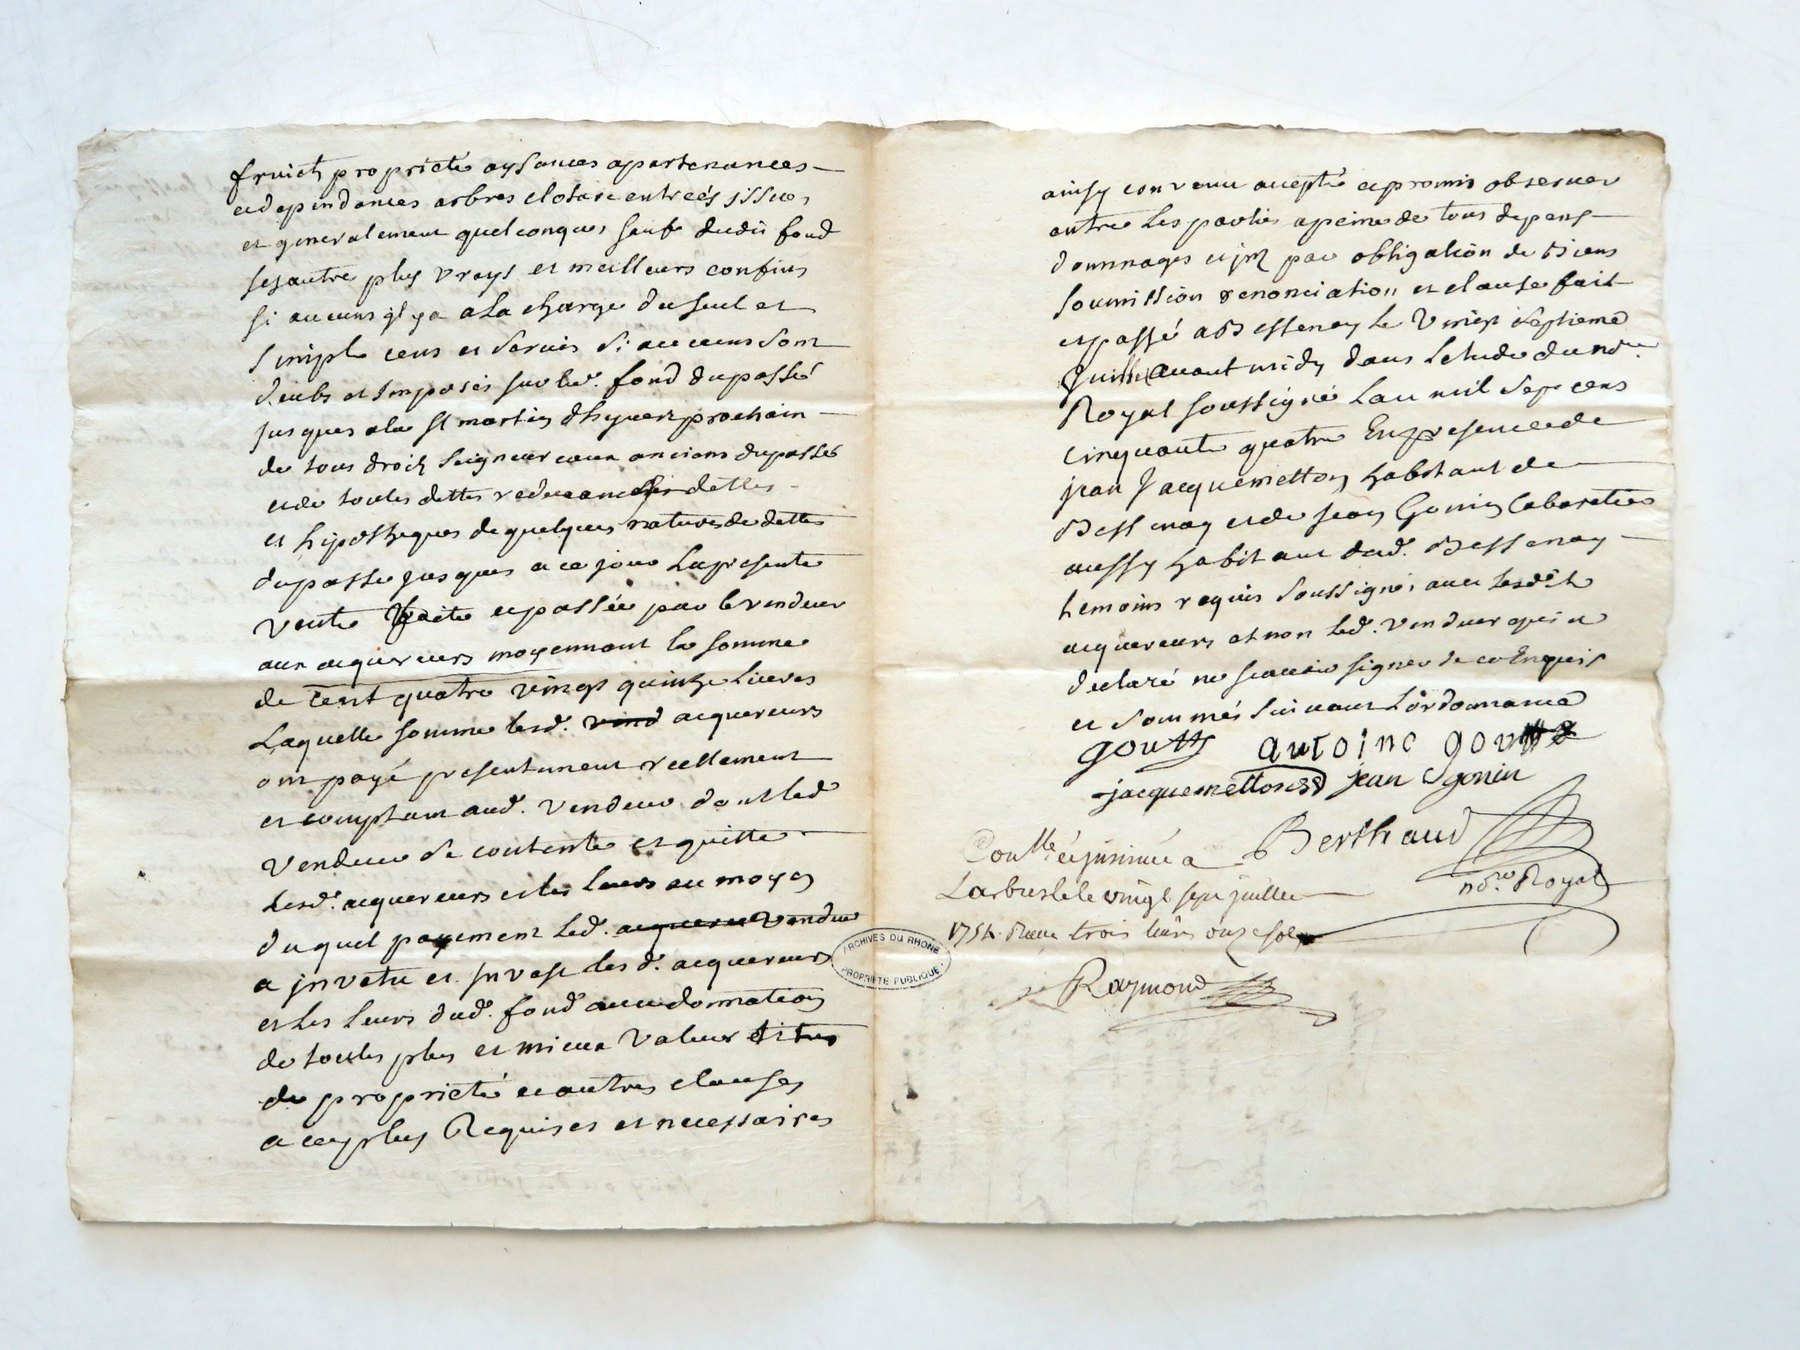 fruicts proprieté aysances apartenances
et dependances arbres cloture entreés issues
et generalement quelconques sauf dudit fond
ses autre plus vrays et meilleurs confins
si aucuns il y a a la charge du seul et
simple cens et servis si aucuns sont
deubs et imposés sur led. fond du passé
jusques a la st martin dhyver prochain
de tous droits seigneuriaux anciens du passés
et de toutes dettes redevances dettes
et hipotheques de quelques natures de dette
du passé jusques a ce jour la presente
vente faite et passée par le vendeur
aux acquereurs moyennant la somme
de cent quatre vingt quinze livres
Laquelle somme lesd. vend acquereurs
ont payé presentement reellement
et comptant aud. vendeur dont led
vendeur se contente et quitte
lesd. acquereurs et les leurs au moyen
duquel payement led. acquereu vendeur
a invetu et invest lesd. acquereurs
et les leurs dud. fond avec donnation
de toutes plus et mieux valeur titres
de proprieté et autres clauses
a ce plus Requises et necessaires
ainsy convenu accepté et promis observer
entre les parties a peine de tous depens
dommages et jnt par obligation de biens
soumission renonciation et clause fait
et passé a Bessenay le vingt septieme
Juillet avant midy dans letude du nore.
Royal soussigné Lan mil sept cens
cinquante quatre En presence de
jean Jacquemetton habitant de
Bessenay et de jean Gonin Cabaretier
aussy habitant dud. Bessenay
temoins requis soussignés avec lesdits
acquereurs et non led. vendeur qui a
declaré ne scavoir signer de ce Enquis
et sommés suivant Lordonnance
goutte antoine goutte
jacquemetton jean gonin
Berthaud
nore. Royal
Conlle. et insinué a
Larbresle le vingt sept juillet
1754. Reçu trois livres onze sols
Raymond
ARCHIVES DU RHONE
PROPRIETE PUBLIQUE